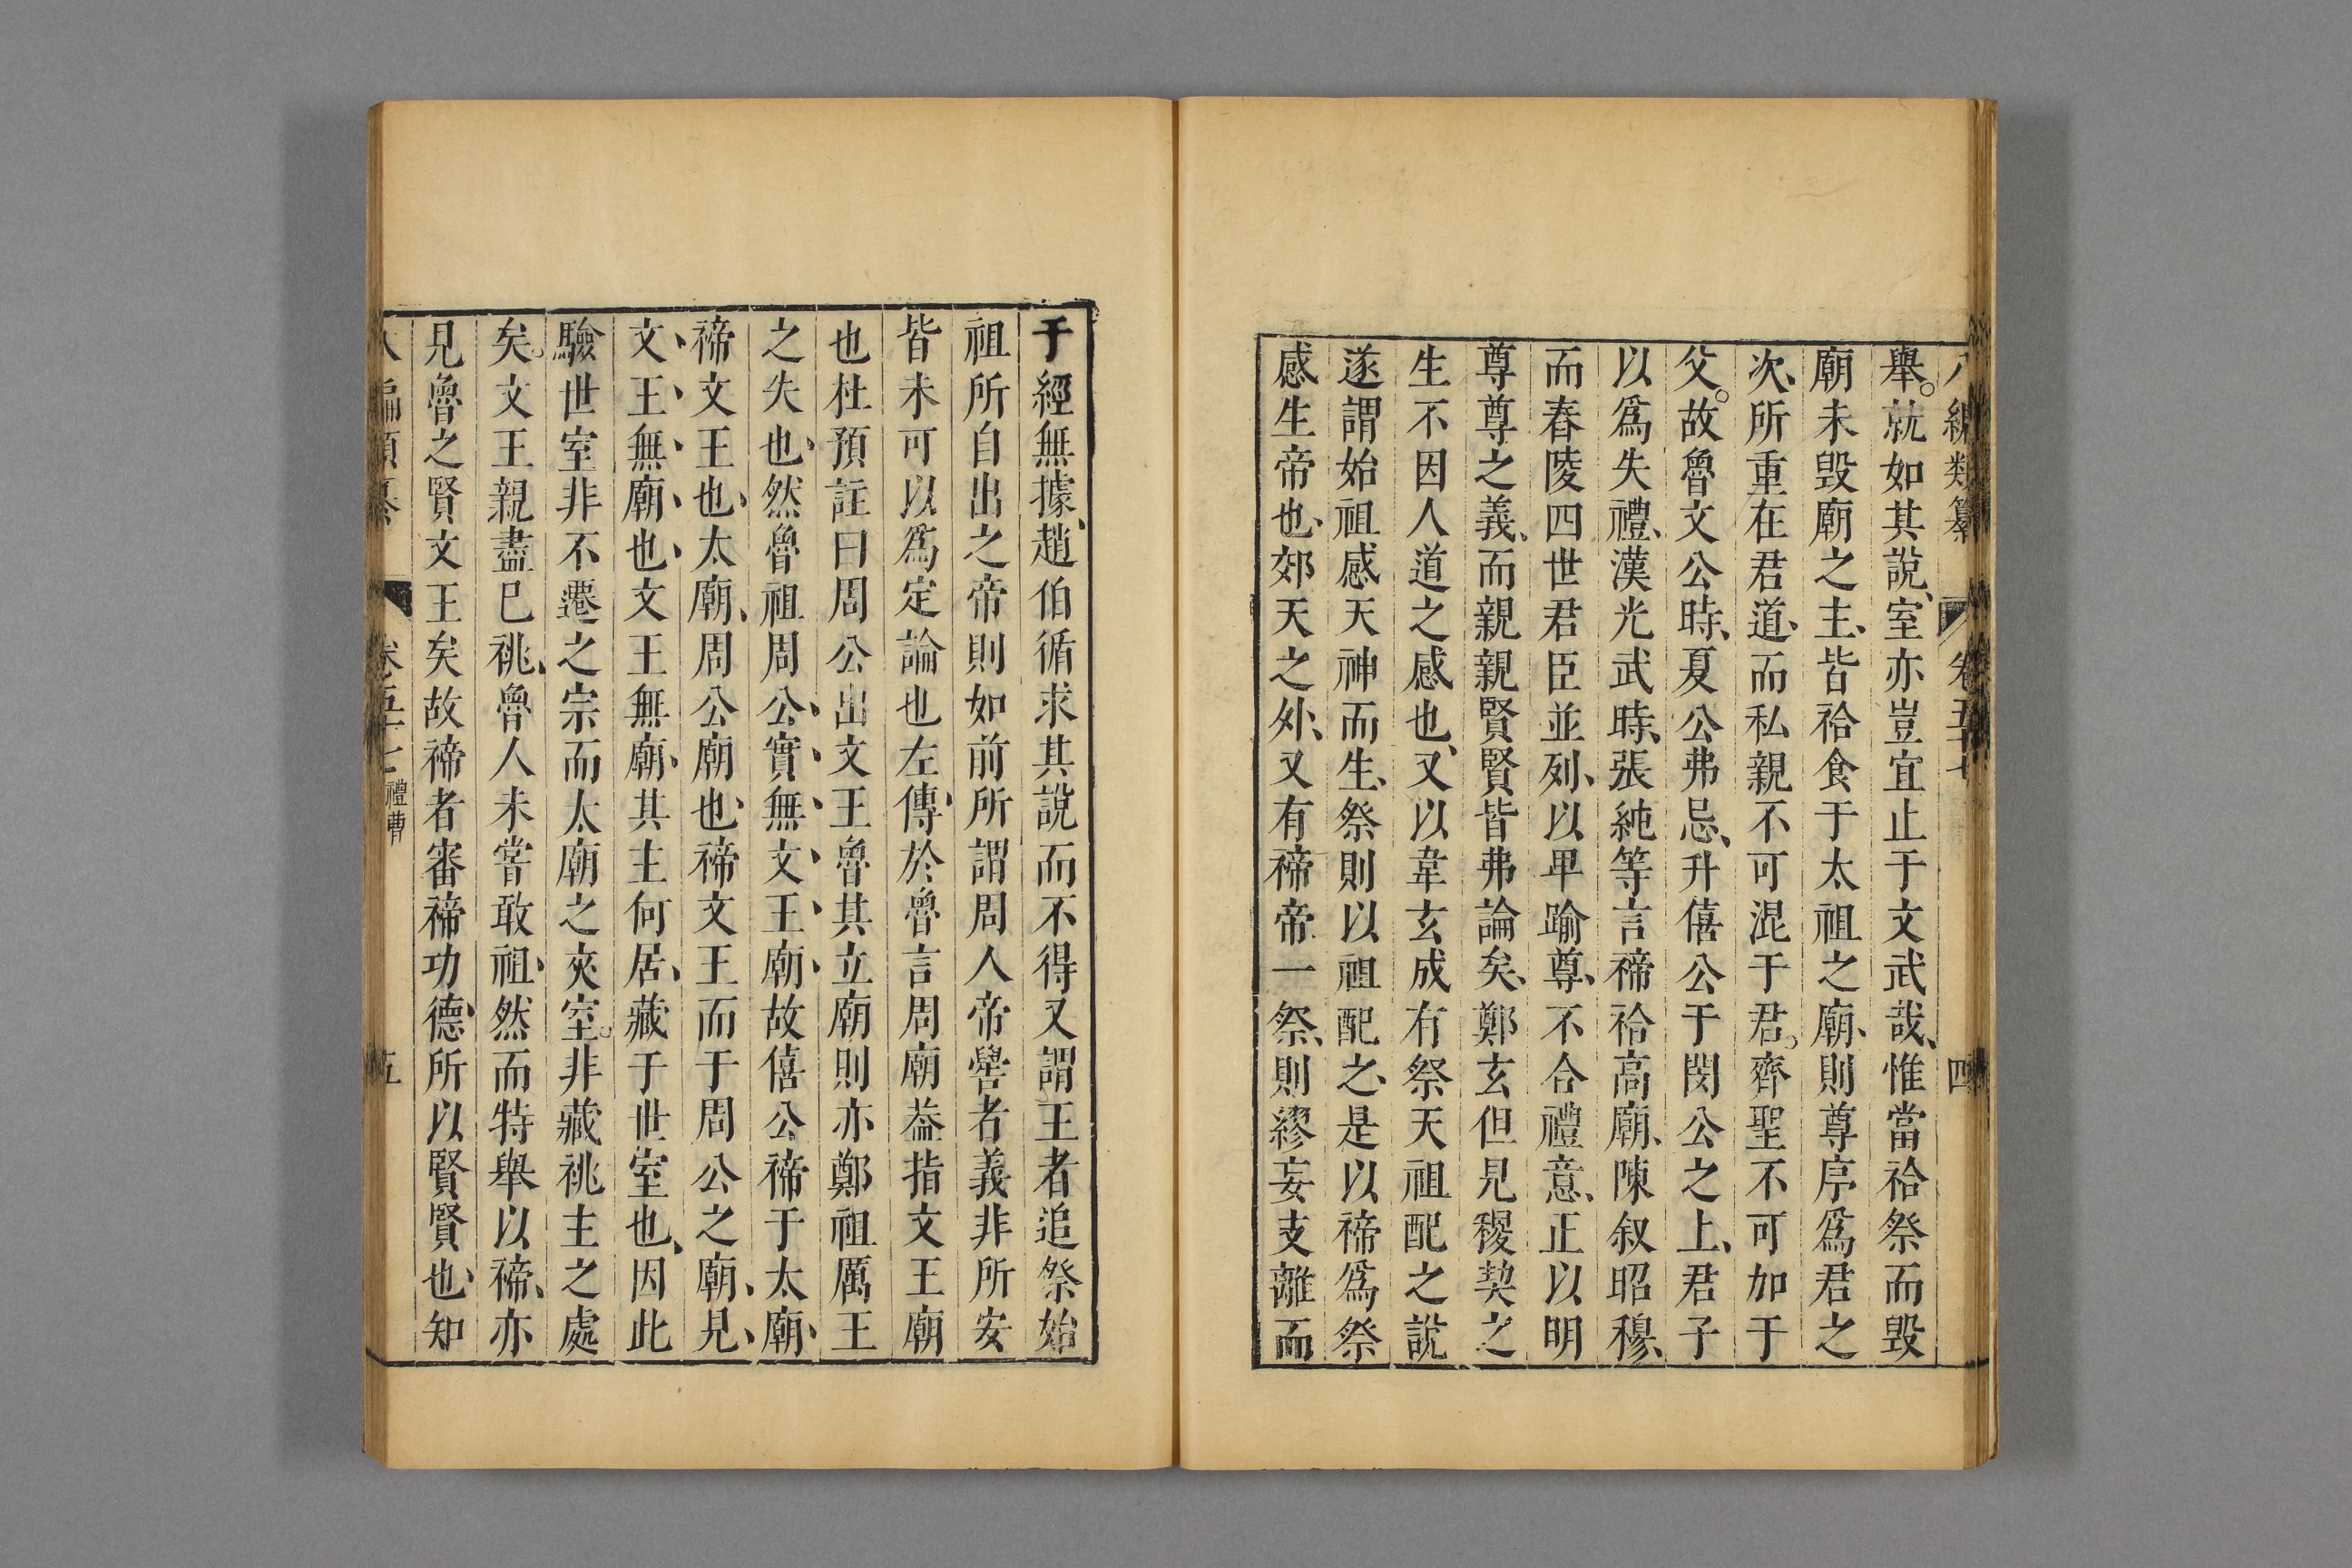 八編類纂 卷五十七 四
舉。就如其說、室亦豈宜止于文武哉、惟當祫祭而毀
廟未毀廟之主、皆祫食于太祖之廟、則尊序爲君之
次、所重在君道、而私親不可混于君。齊聖不可加于
父。故魯文公時、夏公弗忌、升僖公于閔公之上、君子
以爲失禮、漢光武時、張純等言禘祫高廟、陳叙昭穆、
而舂陵四世君臣並列、以卑踰尊、不合禮意、正以明
尊尊之義、而親親賢賢皆弗論矣、鄭玄但見稷契之
生不因人道之感也、又以韋玄成有祭天祖配之說
遂謂始祖感天神而生、祭則以祖配之、是以禘爲祭
感生帝也、郊天之外、又有禘帝一祭、則繆妄支離而
于經無據、趙伯循求其說而不得又謂王者追祭始
祖所自出之帝則如前所謂周人帝嚳者義非所安
皆未可以爲定論也左傳、於魯言周廟葢指文王廟
也杜預註曰周公出文王魯其立廟則亦鄭祖厲王
之失也、然魯祖周公、實、無、文、王、廟、故僖公禘于太廟、
禘文王也、太廟、周公廟也、禘文王而于周公之廟、見、
文、王、無、廟、也、文王無廟、其主何居、藏于世室也、因此
驗世室非不遷之宗而太廟之夾室。非藏祧主之處
矣。文王親盡已祧、魯人未嘗敢祖、然而特舉以禘、亦
見魯之賢文王矣故禘者審禘功德、所以賢賢也、知
八編類纂 卷五十七 禮曹 五